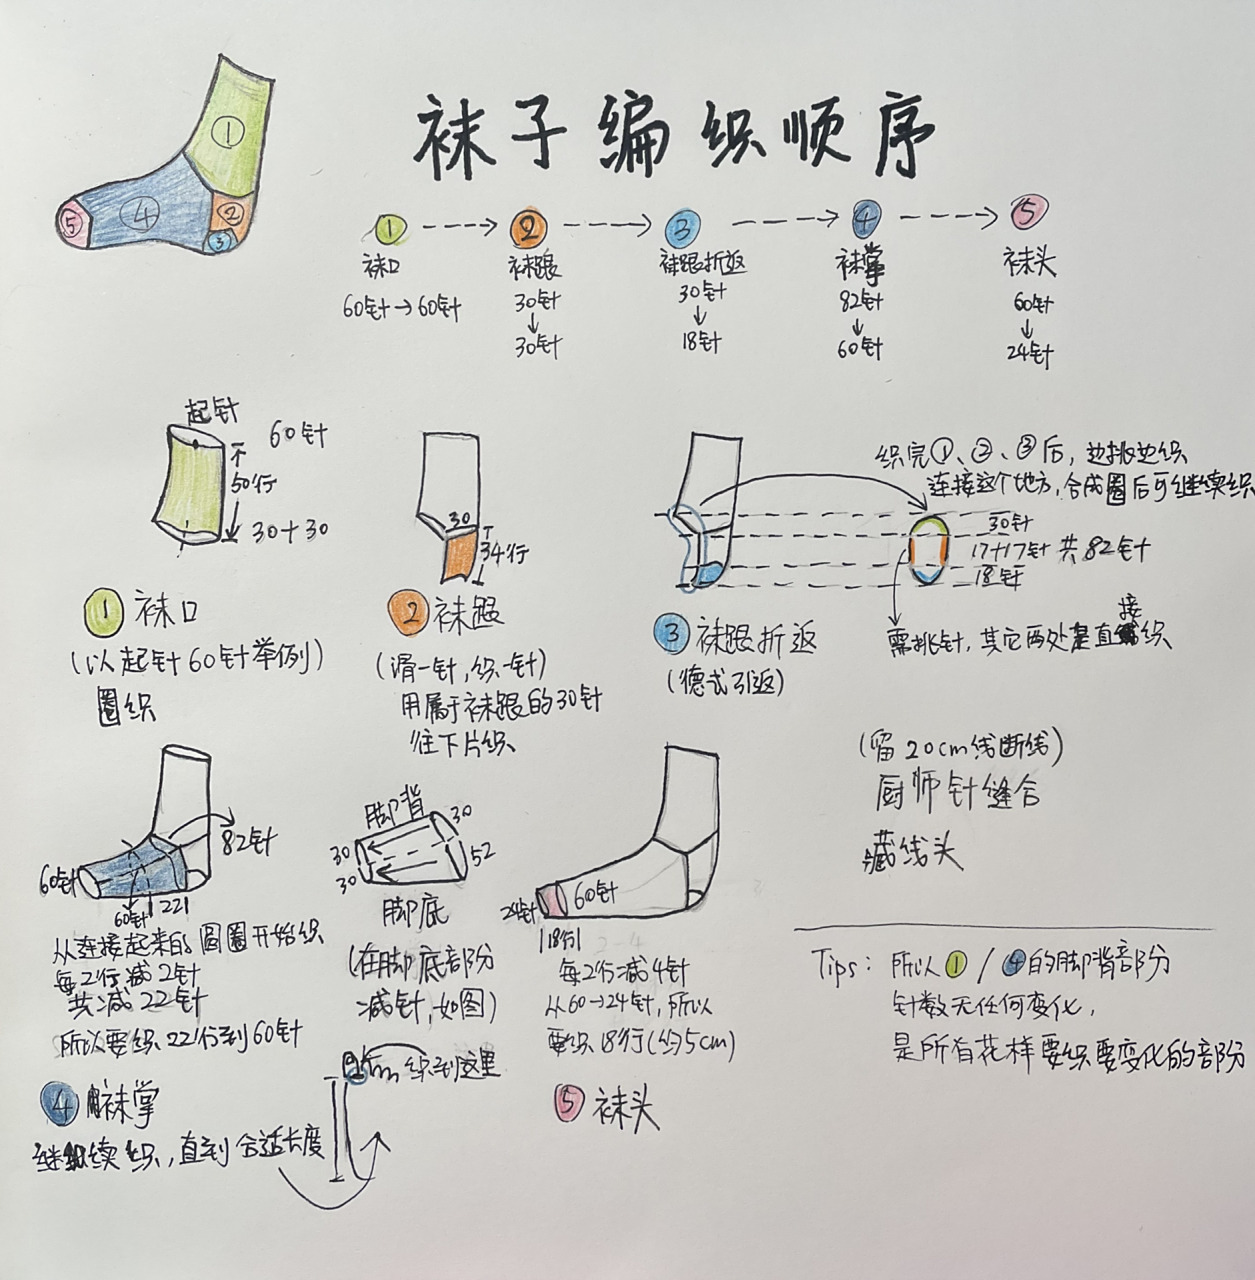 袜子编织顺序
①
②
③
④
⑤
① ② ③ ④ ⑤
袜口 袜跟 袜跟折返 袜掌 袜头
60针→60针 30针 30针 82针 60针
↓ ↓ ↓ ↓
30针 18针 60针 24针
起针
60针
50行
30+30
① 袜口
(以起针60针举例)
圈织
30
34行
② 袜跟
(滑一针,织一针)
用属于袜跟的30针
往下片织
织完①、②、③后,边挑边织
连接这个地方,合成圈后可继续织
30针
17+17针 共82针
18针
需挑针,其它两处是直接织
③ 袜跟折返
(德式引返)
82针
60针
60针
22
从连接起来的圆圈开始织
每2行减2针
共减22针
所以要织22行到60针
④ 袜掌
继续织,直到合适长度
脚背
30
30
52
30
脚底
(在脚底部分
减针,如图)
织到这里
24针
60针
18行
每2行减4针
从60→24针,所以
要织18行(约5cm)
⑤ 袜头
(留20cm线断线)
厨师针缝合
藏线头
Tips: 所以①/④的脚背部分
针数无任何变化,
是所有花样要织要变化的部分